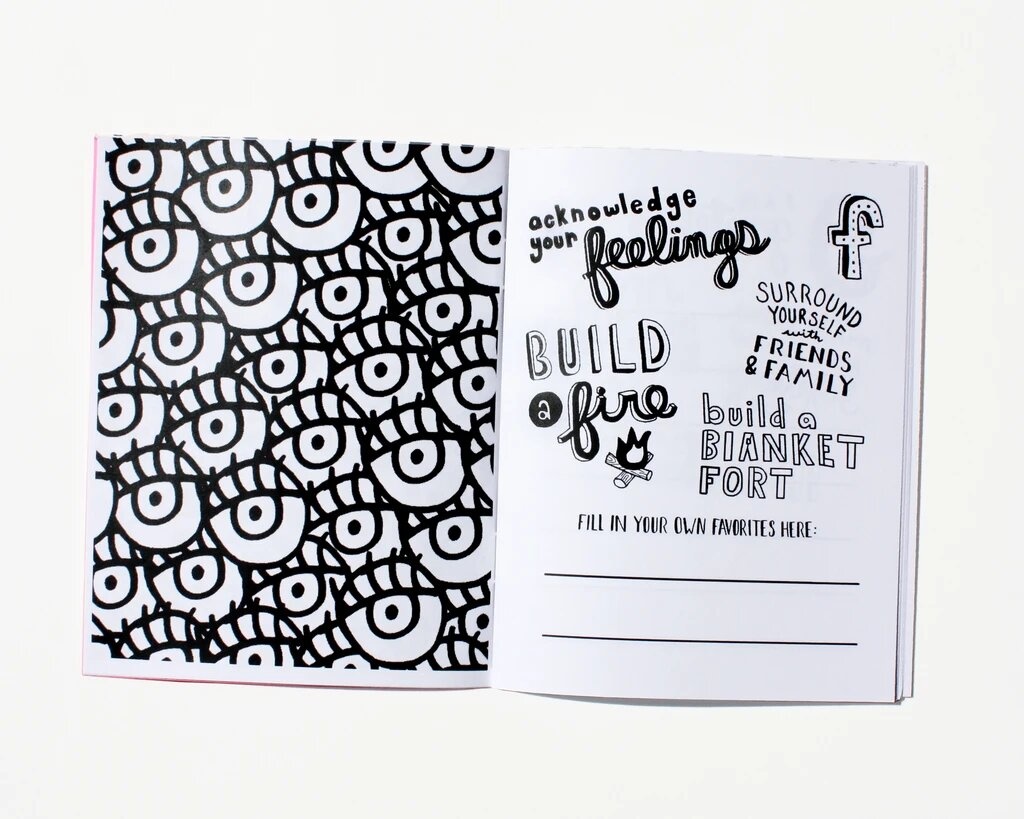 acknowledge
your feelings
f
SURROUND
YOURSELF
with
FRIENDS
& FAMILY
BUILD
a fire
build a
BLANKET
FORT
FILL IN YOUR OWN FAVORITES HERE: